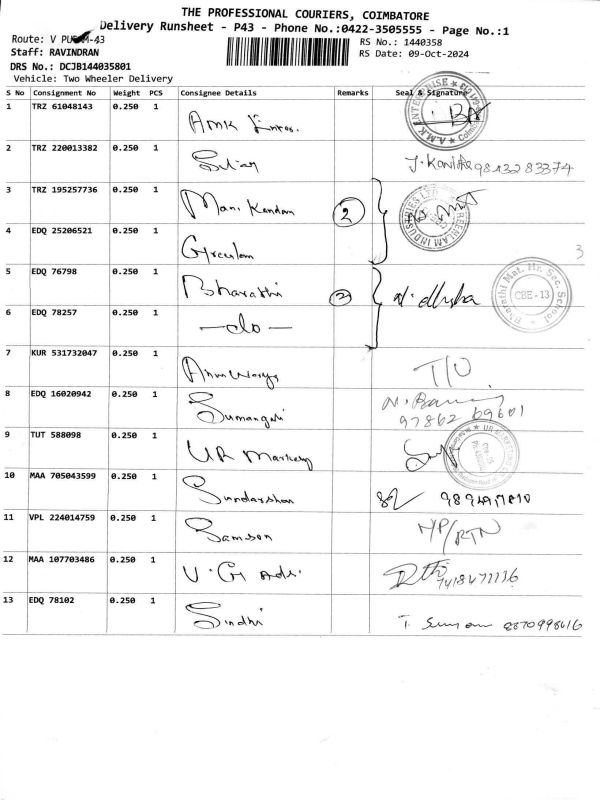 THE PROFESSIONAL COURIERS, COIMBATORE
Delivery Runsheet - P43 - Phone No.:0422-3505555 - Page No.:1
Route: V PU -43
RS No.: 1440358
Staff: RAVINDRAN
RS Date: 09-Oct-2024
DRS No.: DCJB144035801
Vehicle: Two Wheeler Delivery
S No Consignment No Weight PCS Consignee Details Remarks Seal & Signature
1 TRZ 61048143 0.250 1 AMK Enter.
2 TRZ 220013382 0.250 1 J. Kavitha 9843283374
3 TRZ 195257736 0.250 1 Mani Kandam 2
4 EDQ 25206521 0.250 1 Greenlam 3
5 EDQ 76798 0.250 1 Bharathi 2
6 EDQ 78257 0.250 1 -do-
7 KUR 531732047 0.250 1 T/O
8 EDQ 16020942 0.250 1 Sumangali 97862 69601
9 TUT 588098 0.250 1 UR Marketing
10 MAA 705043599 0.250 1 Sundarshan
11 VPL 224014759 0.250 1 Samson NP/RTN
12 MAA 107703486 0.250 1 V. G Ads.
13 EDQ 78102 0.250 1 Sindhi 8870998616
A.M.K ENTERPRISE
Coimbatore
GREENLAM INDUSTRIES LTD
Bharathi Mat. Hr. Sec. School
CBE-13